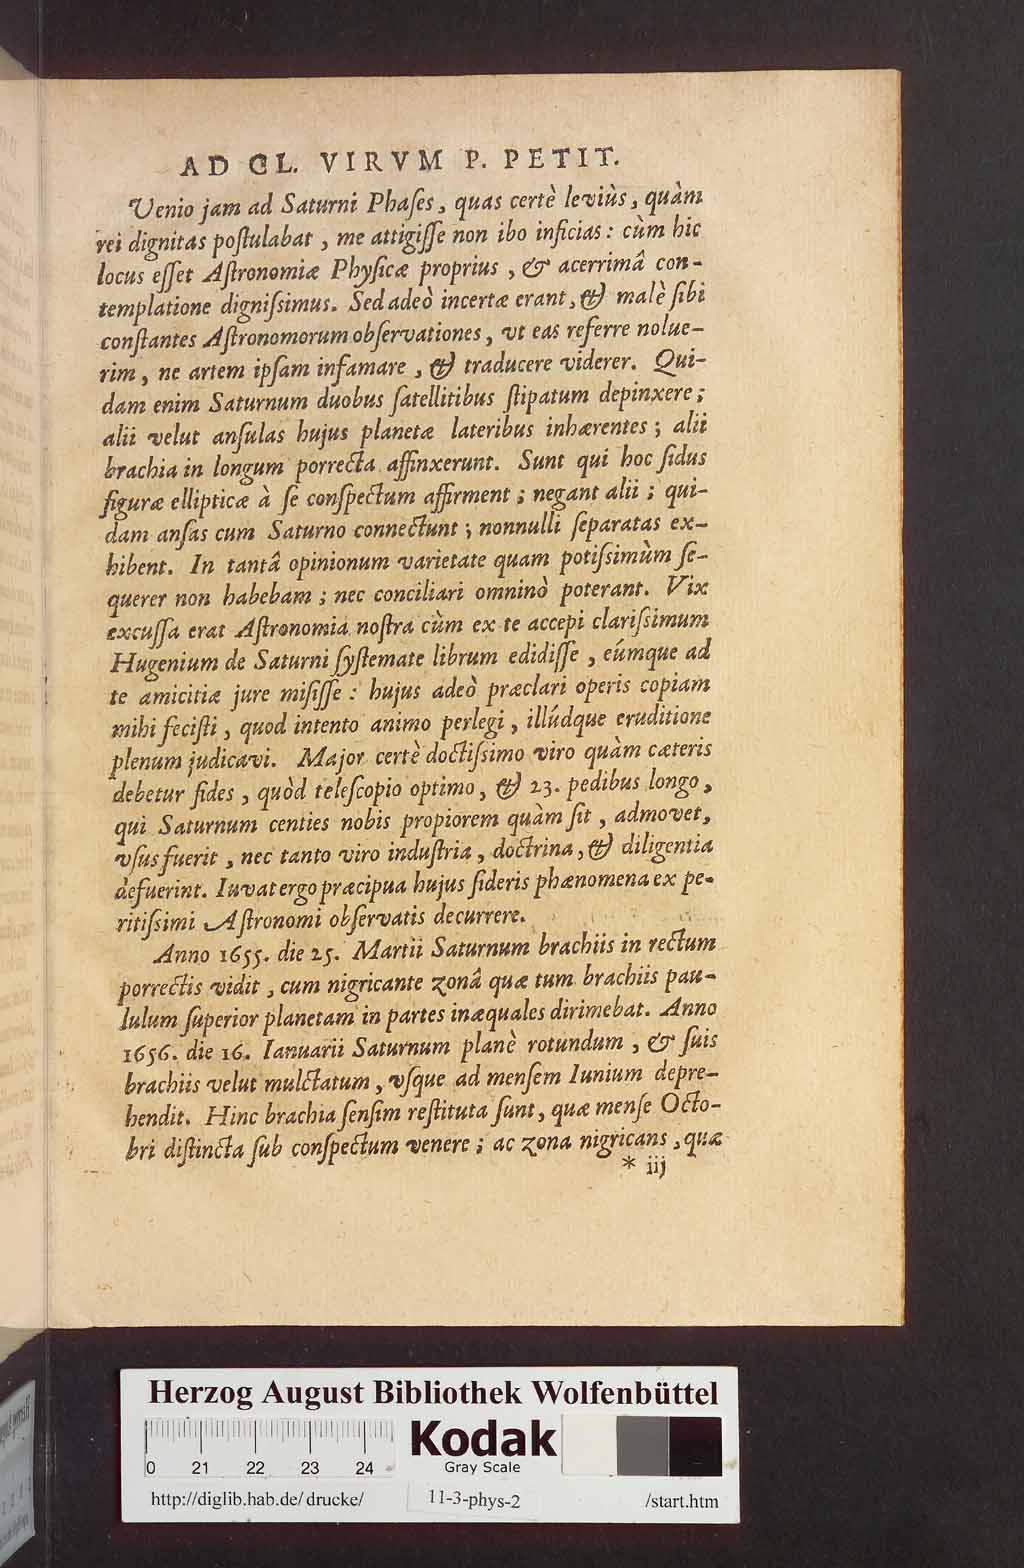 AD CL. VIRVM P. PETIT.
Venio jam ad Saturni Phaſes, quas certè leviùs, quàm
rei dignitas poſtulabat, me attigiſſe non ibo inficias: cùm hic
locus eſſet Aſtronomiæ Phyſicæ proprius, & acerrimâ con-
templatione digniſsimus. Sed adeò incertæ erant, & malè ſibi
conſtantes Aſtronomorum obſervationes, vt eas referre nolue-
rim, ne artem ipſam infamare, & traducere viderer. Qui-
dam enim Saturnum duobus ſatellitibus ſtipatum depinxere;
alii velut anſulas hujus planetæ lateribus inhærentes; alii
brachia in longum porrecta affinxerunt. Sunt qui hoc ſidus
figuræ ellipticæ à ſe conſpectum affirment; negant alii; qui-
dam anſas cum Saturno connectunt; nonnulli ſeparatas ex-
hibent. In tantâ opinionum varietate quam potiſsimùm ſe-
querer non habebam; nec conciliari omninò poterant. Vix
excuſſa erat Aſtronomia noſtra cùm ex te accepi clariſsimum
Hugenium de Saturni ſyſtemate librum edidiſſe, eúmque ad
te amicitiæ jure miſiſſe: hujus adeò præclari operis copiam
mihi feciſti, quod intento animo perlegi, illúdque eruditione
plenum judicavi. Major certè doctiſsimo viro quàm cæteris
debetur fides, quòd teleſcopio optimo, & 23. pedibus longo,
qui Saturnum centies nobis propiorem quàm ſit, admovet,
vſus fuerit, nec tanto viro induſtria, doctrina, & diligentia
defuerint. Iuvat ergo præcipua hujus ſideris phænomena ex pe-
ritiſsimi Aſtronomi obſervatis decurrere.
Anno 1655. die 25. Martii Saturnum brachiis in rectum
porrectis vidit, cum nigricante zonâ quæ tum brachiis pau-
lulum ſuperior planetam in partes inæquales dirimebat. Anno
1656. die 16. Ianuarii Saturnum planè rotundum, & ſuis
brachiis velut mulctatum, vſque ad menſem Iunium depre-
hendit. Hinc brachia ſenſim reſtituta ſunt, quæ menſe Octo-
bri diſtincta ſub conſpectum venere; ac zona nigricans, quæ
* iij
Herzog August Bibliothek Wolfenbüttel
Kodak
Gray Scale
0 21 22 23 24
http://diglib.hab.de/drucke/ 11-3-phys-2 /start.htm